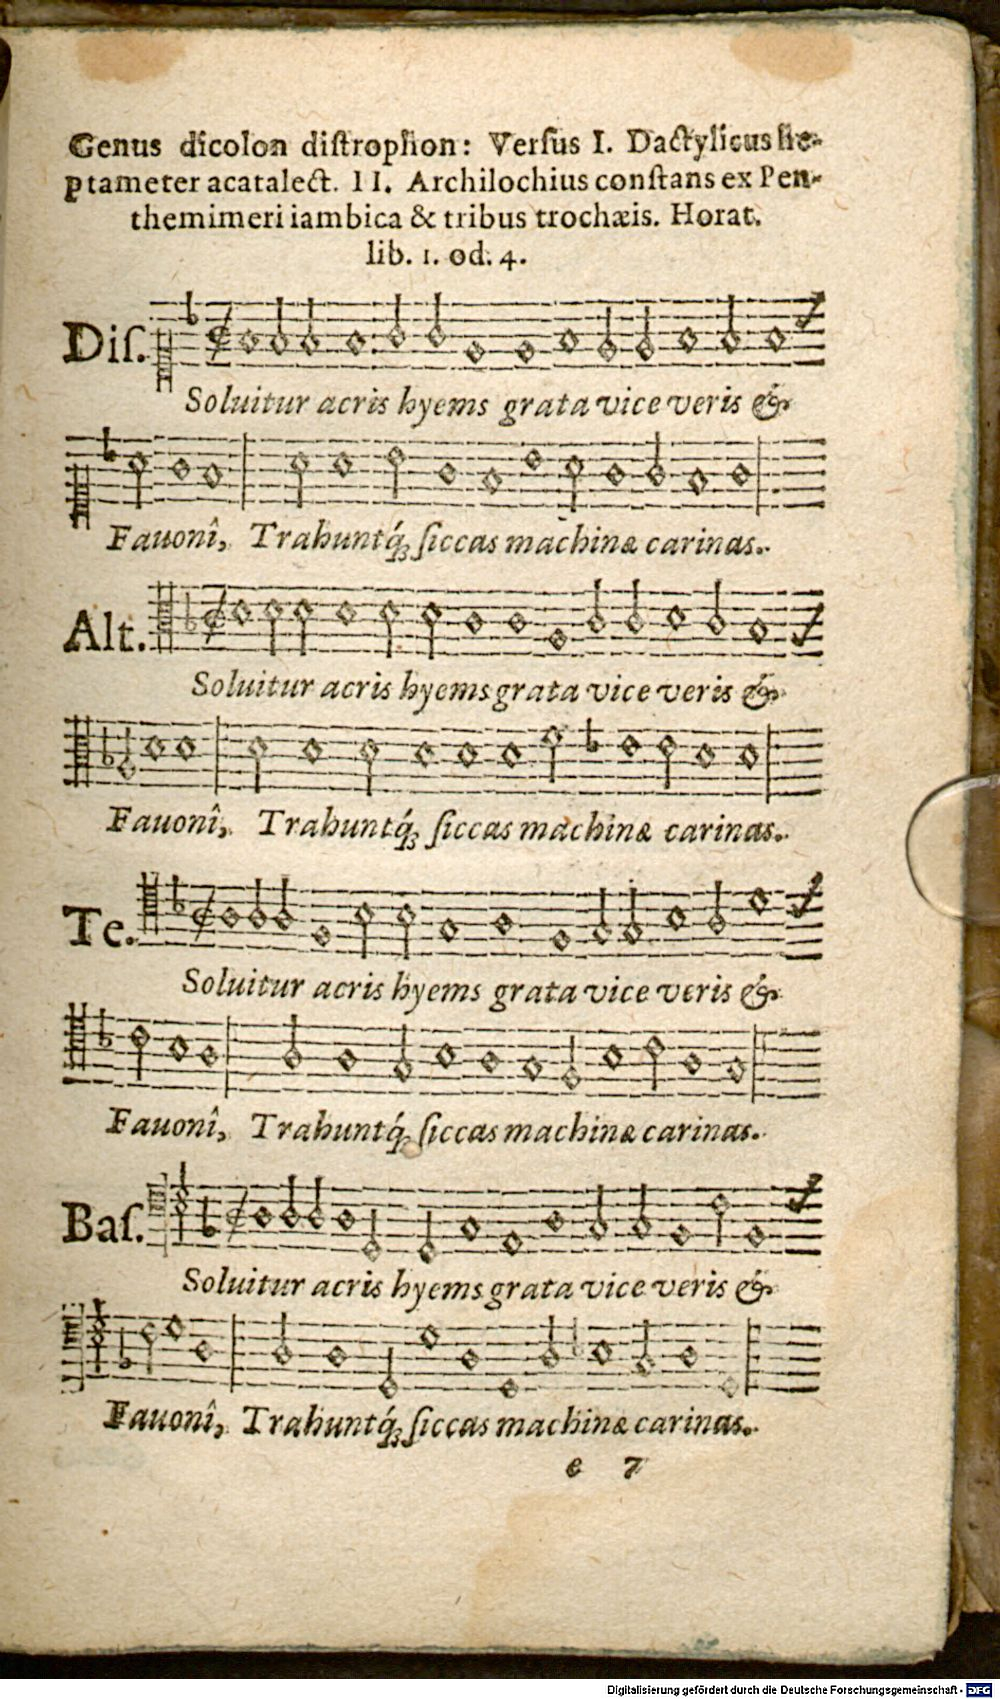 Genus dicolon diſtrophon: Verſus I. Dactylicus he-
ptameter acatalect. II. Archilochius conſtans ex Pen-
themimeri iambica & tribus trochæis. Horat.
lib. 1. od. 4.
Diſ.
Soluitur acris hyems grata vice veris &
Fauonî, Trahuntq́ꝫ ſiccas machinæ carinas.
Alt.
Soluitur acris hyems grata vice veris &
Fauonî, Trahuntq́ꝫ ſiccas machinæ carinas.
Te.
Soluitur acris hyems grata vice veris &
Fauonî, Trahuntq́ꝫ ſiccas machinæ carinas.
Baſ.
Soluitur acris hyems grata vice veris &
Fauonî, Trahuntq́ꝫ ſiccas machinæ carinas.
e 7
Digitalisierung gefördert durch die Deutsche Forschungsgemeinschaft - DFG